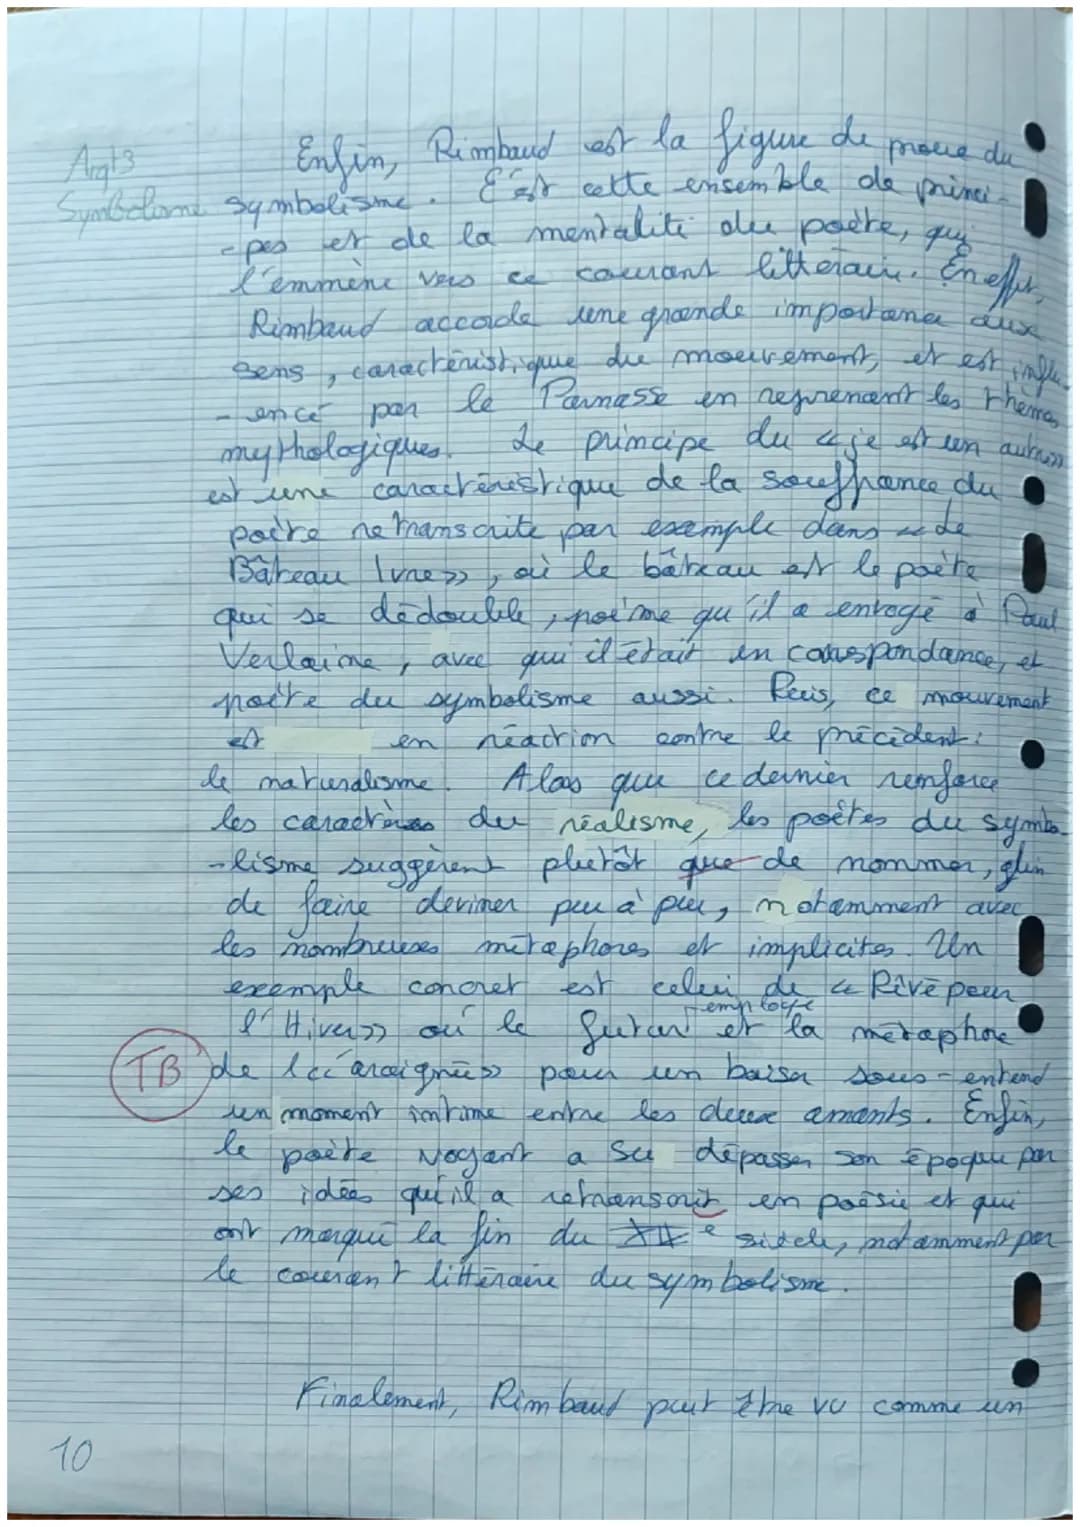 Argt3
Symbolisme
Enfin, Rimbaud est la figure de proue du
symbolisme. C'est cette ensemble de princi-
-pes et de la mentalité du poète, qui
l'emmène vers ce courant littéraire. En effet,
Rimbaud accorde une grande importance aux
sens, caractéristique du mouvement, et est influ-
-encé par le Parnasse en reprenant les thèmes
mythologiques. Le principe du «je est un autre»
est une caractéristique de la souffrance du
poète retranscrite par exemple dans «Le
Bâteau Ivre», où le bâteau est le poète
qui se dédouble, poème qu'il a envoyé à Paul
Verlaine, avec qui il était en correspondance, et
poète du symbolisme aussi. Puis, ce mouvement
est en réaction contre le précédent:
le naturalisme. Alors que ce dernier renforce
les caractères du réalisme, les poètes du symbo-
-lisme suggèrent plutôt que de nommer, afin
de faire deviner peu à peu, notamment avec
les nombreuses métaphores et implicites. Un
exemple concret est celui de «Rêvé pour
l'Hiver» où le futur employé et la métaphore
TB
de l'«araignée» pour un baiser sous-entend
un moment intime entre les deux amants. Enfin,
le poète voyant a su dépasser son époque par
ses idées qu'il a retranscrit en poésie et qui
ont marqué la fin du XIXe siècle, notamment par
le courant littéraire du symbolisme.
Finalement, Rimbaud peut être vu comme un
10